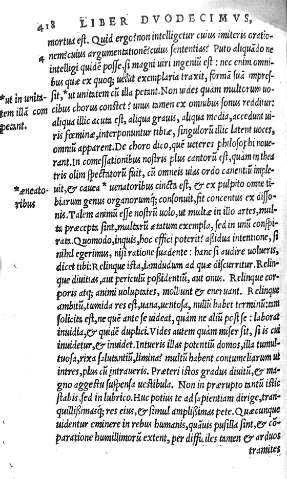 418 LIBER DVODECIMVS,
mortua est. Quid ergo? non intelligetur cuius imiteris oratio-
nem? cuius argumentationē? cuius sententias? Puto aliquādo ne
intelligi quidē posse, si magni uiri ingeniū est: nec enim omni-
bus quæ ex quoq; uelut exemplaria traxit, formā suā impres-
*ut in unita-
tem illā com
petant.
sit,*ut unitatem cū illa petant. Non uides quàm multorum uo-
cibus chorus constet? unus tamen ex omnibus sonus redditur:
aliqua illic acuta est, aliqua grauis, aliqua media, accedunt ui-
ris fœminæ, interponuntur tibiæ, singulorū illic latent uoces,
omniū apparent. De choro dico, quē ueteres philosophi noue-
rant. In comessationibus nostris plus cantorū est, quàm in thea
tris olim spectatorū fuit, cū omneis uias ordo canentiū imple-
*æneato-
ribus
uit, & cauea *uenatoribus cincta est, & ex pulpito omne ti-
biarum genus organorumq; consonuit, fit concentus ex disso-
nis. Talem animū esse nostrū uolo, ut multæ in illo artes, mul-
ta præcepta sint, multarū ætatum exempla, sed in unū conspi-
rata. Quomodo, inquis, hoc effici poterit? assidua intentione, si
nihil egerimus, nisi ratione suadente: hanc si audire uolueris,
dicet tibi: Relinque ista, iamdudum ad quæ discurritur. Relin-
que diuitias, aut periculū possidentiū, aut onus. Relinque cor-
poris atq; animi uoluptates, molliunt & eneruant. Relinque
ambitū, tumida res est, uana, uentosa, nullū habet terminū: tam
solicita est, ne quē ante se uideat, quàm ne aliū post se: laborat
inuidia, & quidē duplici. Vides autem quàm miser sit, si is cui
inuidetur, & inuidet. Intueris illas potentiū domos, illa tumul-
tuosa, rixa salutantiū, limina? multū habent contumeliarum ut
intres, plus cū intraueris. Præteri istos gradus diuitū, & ma-
gno aggestu suspensa uestibula. Non in prærupto tantū istic
stabis, sed in lubrico. Huc potius te ad sapientiam dirige, tran-
quillissimasq; res eius, & simul amplissimas pete. Quæcunque
uidentur eminere in rebus humanis, quāuis pusilla sint, & cō-
paratione humillimorū extent, per difficiles tamen & arduos
tramites